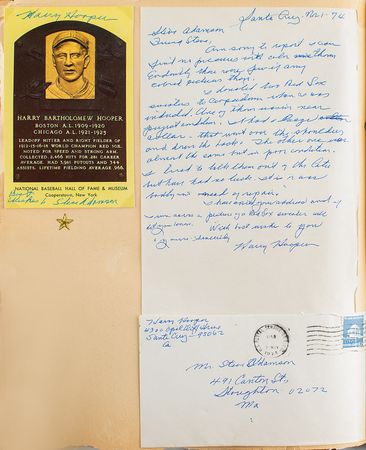 Harry Hooper
HARRY BARTHOLOMEW HOOPER
BOSTON A.L. 1909-1920
CHICAGO A.L. 1921-1925
LEADOFF HITTER AND RIGHT FIELDER OF
1912-15-16-18 WORLD CHAMPION RED SOX.
NOTED FOR SPEED AND STRONG ARM.
COLLECTED 2,466 HITS FOR .281 CAREER
AVERAGE. HAD 3,981 PUTOUTS AND 344
ASSISTS. LIFETIME FIELDING AVERAGE .966.
NATIONAL BASEBALL HALL OF FAME & MUSEUM
Cooperstown, New York
Best
Wishes to Steve Adamson
Santa Cruz. Nov. 1-74
Steve Adamson
Friend Steve,
Am sorry to report I can
find no pictures with color in them
Evidently there were few if any
colored pictures then.
I donated two Red Sox
sweaters to Cooperstown when I was
inducted. One of them was in near
perfect condition. It had a large
collar - that went over the shoulders
and down the back. The other one was
almost the same but in poor condition.
I tried to talk them out of the latter
but have had no luck. It is in a
body in need of repair.
I have your address and if
I run across a picture of a Red Sox sweater will
let you know.
With best wishes to you
Yours sincerely
Harry Hooper
Harry Hooper
Santa Cruz - 95062
Ca
Mr. Steve Adamson
491 Canton St.
Stoughton 02072
Ma